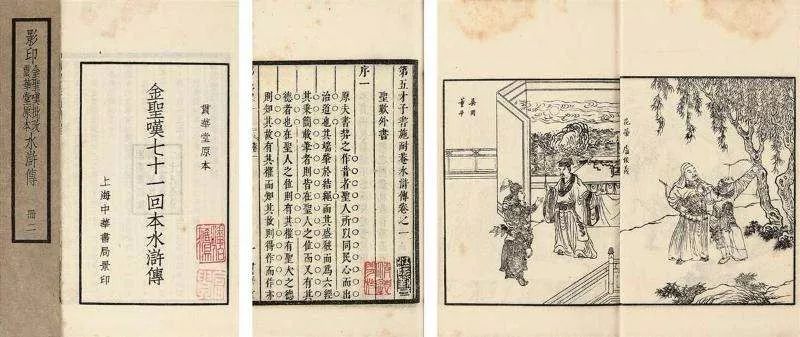 影印金聖嘆批改貫華堂原本水滸傳 冊二
貫華堂原本
金聖嘆七十一回本水滸傳
上海中華書局景印
第五才子書施耐菴水滸傳卷之一
聖歎外書
序一
原夫書契之作昔者聖人所以同民心而出
治道也其端肇於結繩而其盛殽而爲六經
其秉簡載筆者則皆在聖人之位而又有其
德者也在聖人之位則有其權有聖人之德
則知其故有其權而知其故則得作而作亦
吳用
董平
花榮 盧俊義